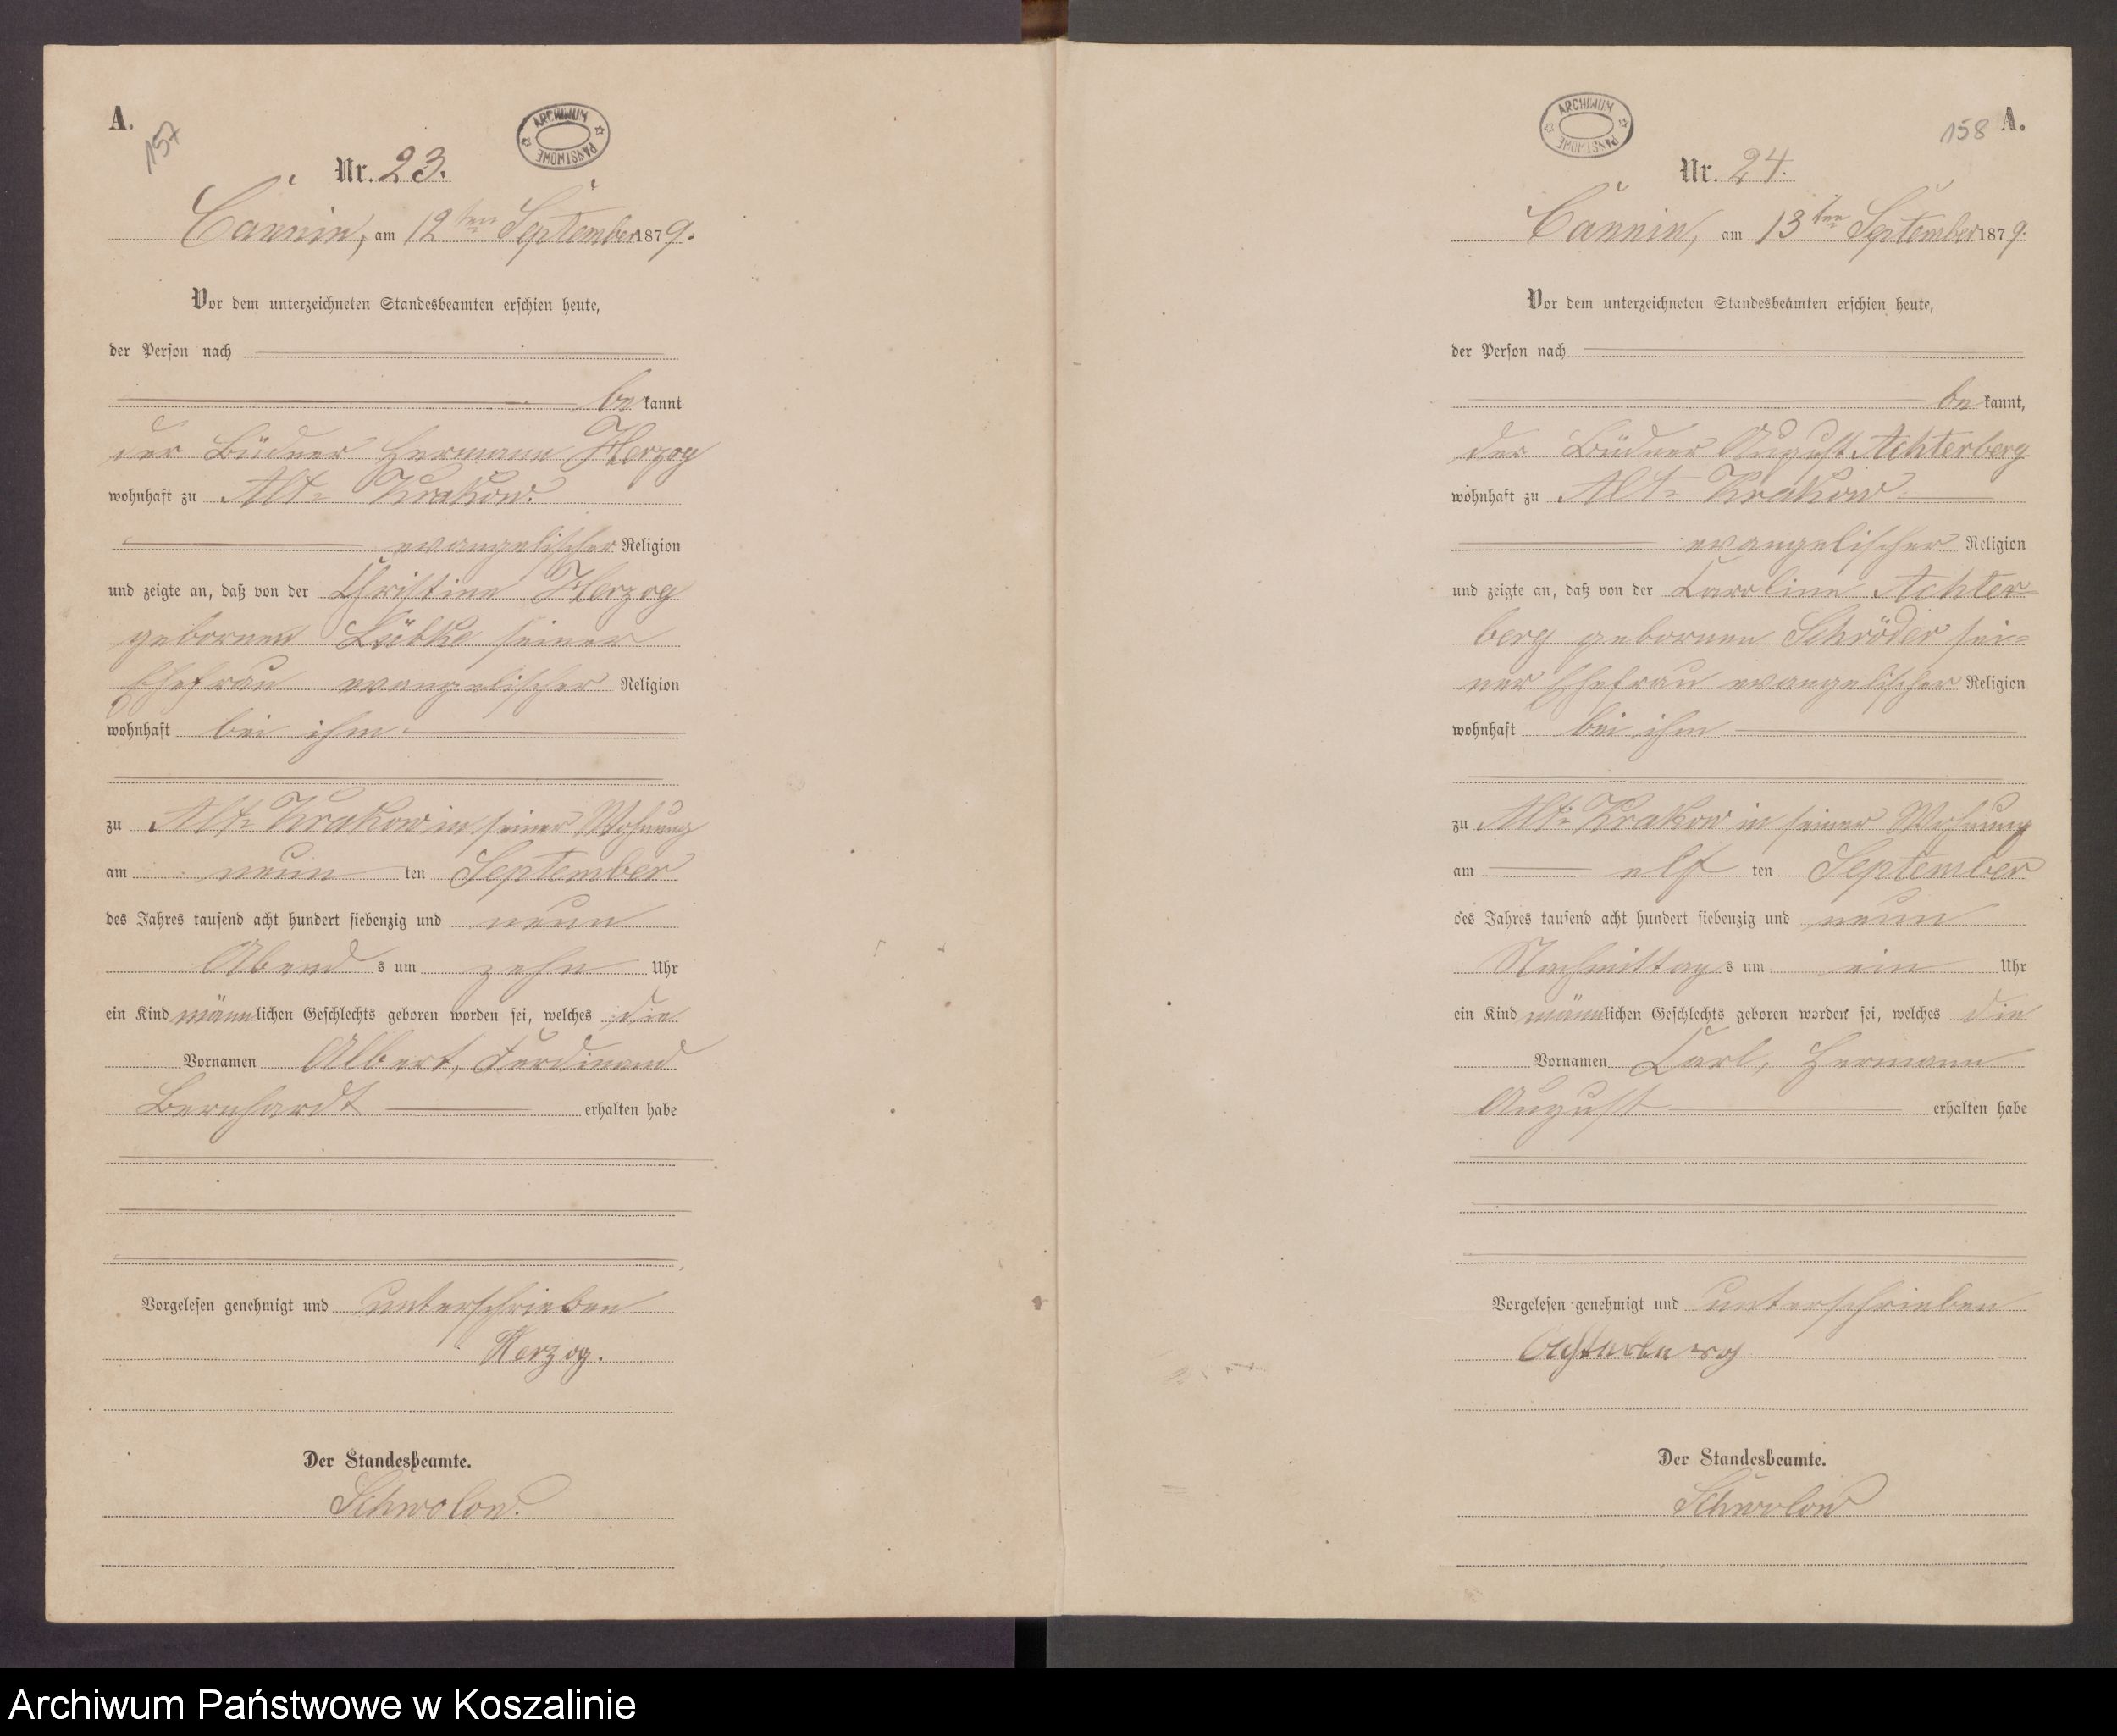 A.
157
ARCHIWUM PAŃSTWOWE
Nr. 23.
Cannin, am 12ten September 1879.
Vor dem unterzeichneten Standesbeamten erschien heute,
der Person nach
be kannt
der Büdner Hermann Herzog
wohnhaft zu Alt-Krakow
evangelischer Religion
und zeigte an, daß von der Christine Herzog
gebornen Lübke seiner
Ehefrau evangelischer Religion
wohnhaft bei ihm
zu Alt-Krakow in seiner Wohnung
am neun ten September
des Jahres tausend acht hundert siebenzig und neun
Abend s um zehn Uhr
ein Kind männlichen Geschlechts geboren worden sei, welches die
Vornamen Albert, Ferdinand
Bernhardt erhalten habe
Vorgelesen genehmigt und unterschrieben
Herzog.
Der Standesbeamte.
Schwolow.
ARCHIWUM PAŃSTWOWE
158 A.
Nr. 24.
Cannin, am 13ten September 1879.
Vor dem unterzeichneten Standesbeamten erschien heute,
der Person nach
be kannt,
der Büdner August Achterberg
wohnhaft zu Alt-Krakow
evangelischer Religion
und zeigte an, daß von der Caroline Achter-
berg gebornen Schröder sei-
ner Ehefrau evangelischer Religion
wohnhaft bei ihm
zu Alt-Krakow in seiner Wohnung
am elf ten September
des Jahres tausend acht hundert siebenzig und neun
Nachmittag s um ein Uhr
ein Kind männlichen Geschlechts geboren worden sei, welches die
Vornamen Carl, Hermann
August erhalten habe
Vorgelesen genehmigt und unterschrieben
Achterberg
Der Standesbeamte.
Schwolow
Archiwum Państwowe w Koszalinie